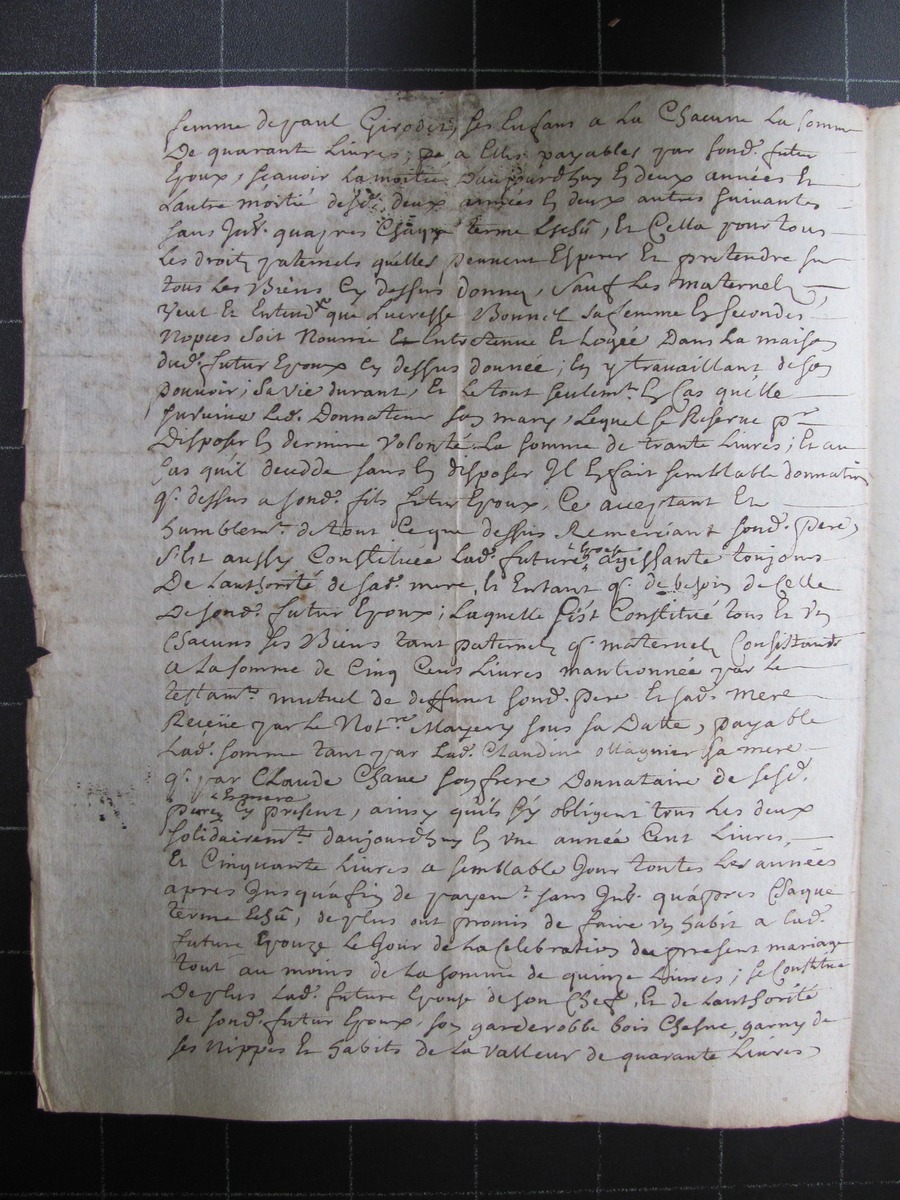 femme de paul Girodet, ses Enfans a La Chacune La somme
De quarante Livres, a Elles payables par sond. futur
Epoux, sçavoir La moitié Daujourdhuy En deux années Et
Lautre moitié desd. deux années En deux autres suivantes
sans Intt. quapres Chaque terme Eschû, Et Cella pour tous
Les droits paternels quelles peuvent Esperer Et pretendre sur
tous Les Biens Cy dessus donnez, sauf Les maternels,
veut Et Entend que Lucresse Bonnel sa femme En secondes
Nopces soit Nourrie Et Entretenue Et Logée Dans La maison
dud. futur Epoux Cy dessus donnée; En y travaillant de son
pouvoir; sa vie durant, Et Le tout seulemt. En Cas quelle
survive Led. Donnateur son mary, Lequel se Reserve pr.
Disposer En derniere volonté La somme de trante Livres; Et au
Cas quil decedde sans En disposer Il En fait semblable donnation
q. dessus a sond. fils futur Epoux, Ce acceptant Et
humblemt. de tout Ce que dessus Remerciant sond. pere,
s'est aussy Constituée Lad. future Epouze agissante toujours
De Lauthorité de sad. mere, Et Entant q. de besoin de Celle
De sond. futur Epoux; Laquelle s'est Constitué tous Et Un
Chacuns ses Biens tant paternels q. maternels Consistants
a La somme de Cinq Cens Livres mantionnée par Le
testamt. mutuel de deffunct sond. pere Et sad. mere
Receüe par Le Notre. Mayery sous sa Datte, payable
Lad. somme tant par Lad. Claudine Magnier sa mere
q. par Claude Chave son frere Donnataire de sesd.
pere Et mere Cy present, ainsy quils s'y obligent tous Les deux
solidairemt. daujourdhuy En une année Cent Livres,
Et Cinquante Livres a semblable Jour toutes Les années
apres Jusqua fin de payemt. sans Intt. quapres Chaque
terme Eschû, de plus ont promis de faire un habit a Lad.
future Epouze Le Jour de La Celebration du present mariage
tout au moins de La somme de quinze Livres; se Constitue
De plus Lad. future Epouse de son Chef, Et de Lauthorité
de sond. futur Epoux, son garderobbe bois Chesne, garny de
ses Nippes Et habits de La valleur de quarante Livres,